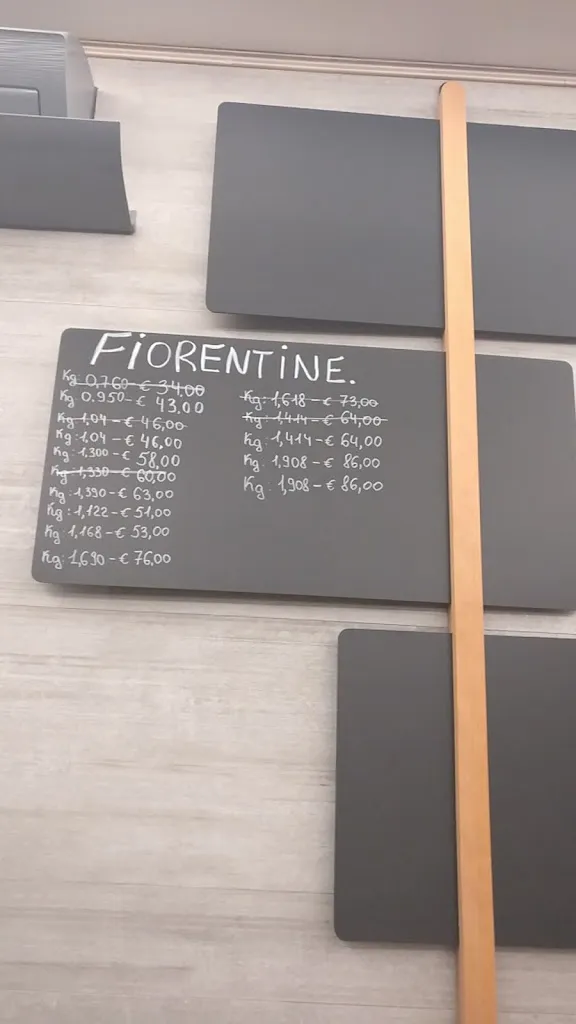 FiORENTiNE.
Kg 0,760-€ 34,00
Kg 0.950-€ 43,00
Kg:1,04-€ 46,00
Kg:1,04-€ 46,00
Kg:1,300-€ 58,00
Kg:1,330-€ 60,00
Kg:1,390-€ 63,00
Kg:1,122-€ 51,00
Kg:1,168-€ 53,00
Kg:1,690-€ 76,00
Kg:1,618-€ 73,00
Kg:1,414-€ 64,00
Kg:1,414-€ 64,00
Kg:1,908-€ 86,00
Kg:1,908-€ 86,00